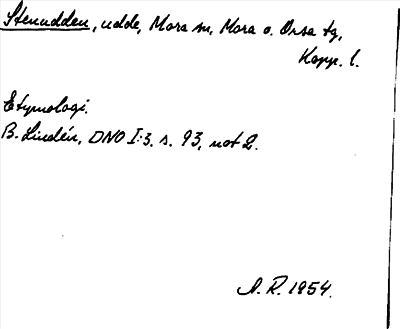 Stenudden, udde, Mora sn, Mora o. Orsa tg,
Kopp. l.
Etymologi.
B. Lindén, DNO I:3, s. 93, not 2.
A. R. 1954.